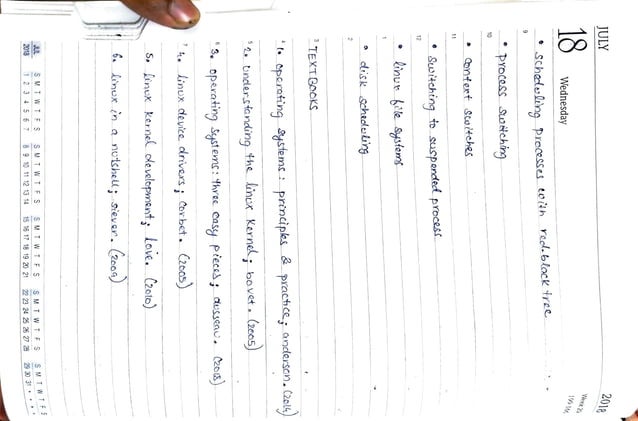 JULY 2018
18 Wednesday
Week 29
9 • scheduling processes with red-black tree
10 • process switching
11 • context switches
12 • switching to suspended process
1 • linux file systems
2 • disk scheduling
3 TEXTBOOKS
4 1. operating systems: principles & practice; anderson. (2014)
5 2. understanding the linux kernel; bovet. (2005)
6 3. operating systems: three easy pieces; (2018)
7 4. linux device drivers; corbet. (2005)
5. linux kernel development; love. (2010)
6. linux in a nutshell; siever. (2009)
JUL 2018
S M T W T F S S M T W T F S S M T W T F S S M T W T F S S M T W T F S
1 2 3 4 5 6 7 8 9 10 11 12 13 14 15 16 17 18 19 20 21 22 23 24 25 26 27 28 29 30 31